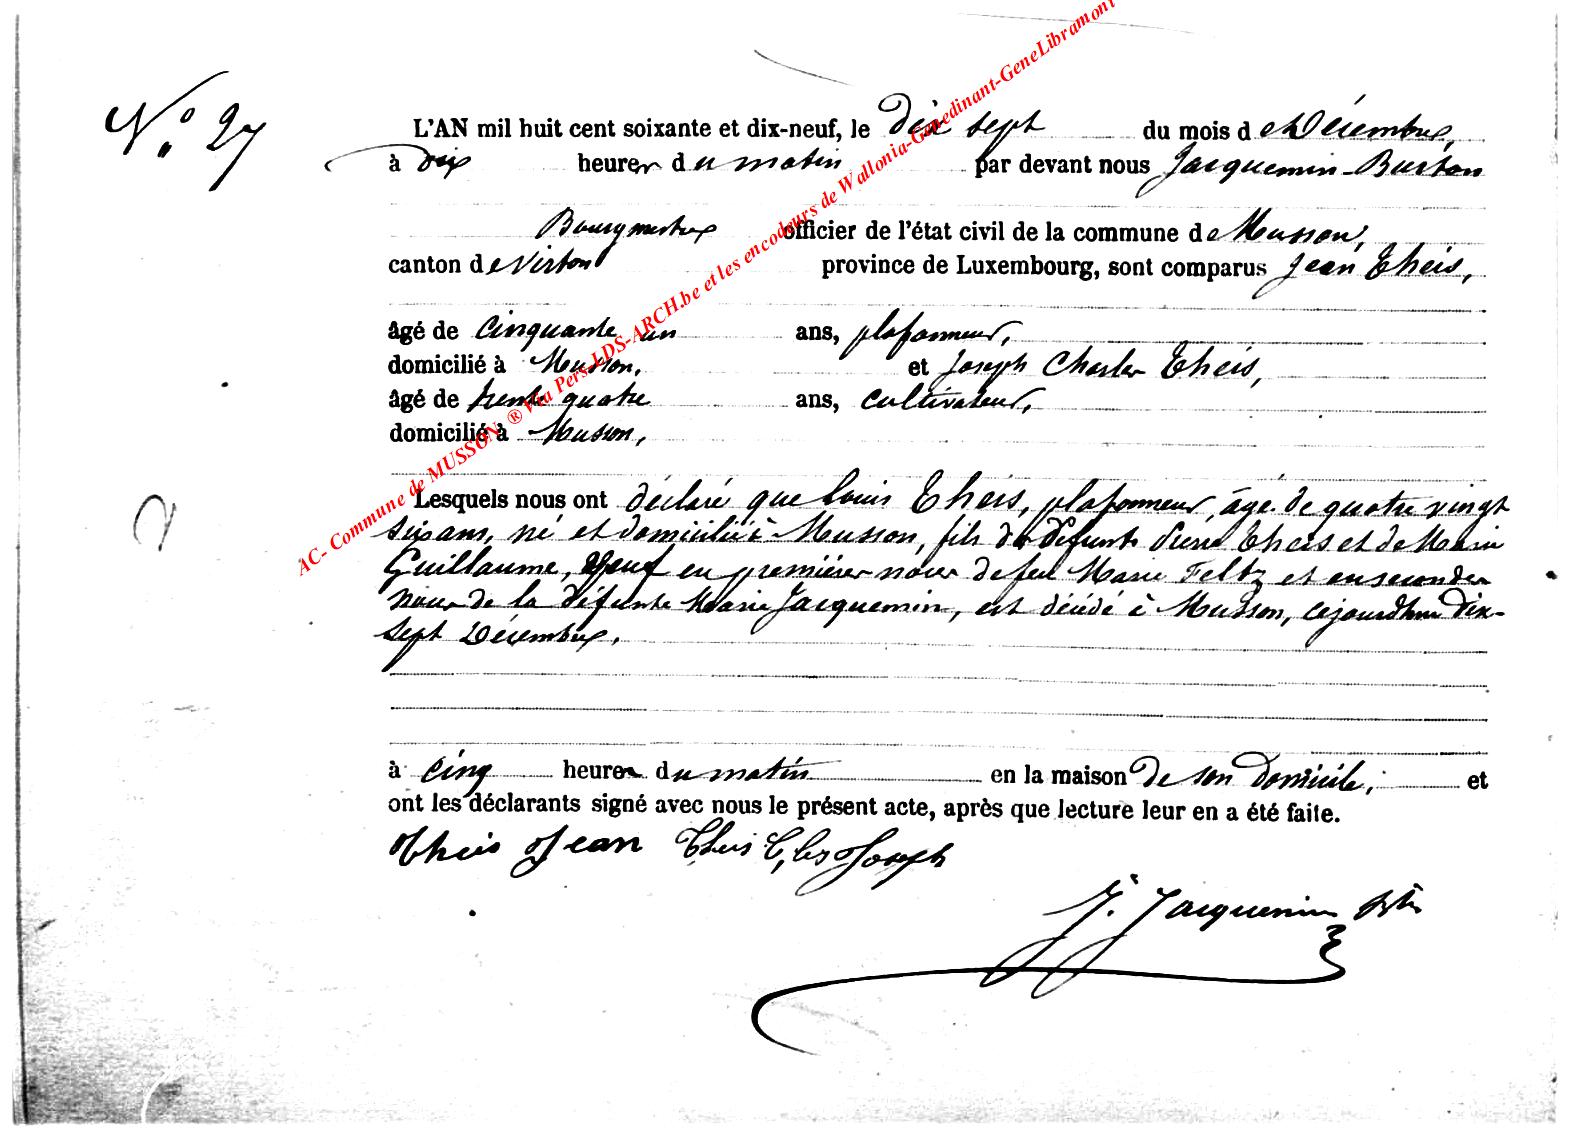 N° 27
L'AN mil huit cent soixante et dix-neuf, le dix sept du mois de Décembre,
à dix heures du matin par devant nous Jacquemin-Burton
Bourgmestre officier de l'état civil de la commune de Musson,
canton de Virton province de Luxembourg, sont comparus Jean Theis,
âgé de cinquante un ans, plafonneur,
domicilié à Musson, et Joseph Charles Theis,
âgé de trente quatre ans, cultivateur,
domicilié à Musson,
Lesquels nous ont déclaré que Louis Theis, plafonneur, âgé de quatre vingt
six ans, né et domicilié à Musson, fils de défunts Pierre Theis et de Marie
Guillaume, veuf en premières noces de feu Marie Feltz et en secondes
noces de la défunte Marie Jacquemin, est décédé à Musson, cejourdhui dix-
sept Décembre,
à cinq heures du matin en la maison de son domicile, et
ont les déclarants signé avec nous le présent acte, après que lecture leur en a été faite.
Theis Jean Theis Ch,les Joseph
J. Jacquemin Btn
AC- Commune de MUSSON. ® Via Pers-LDS-ARCH.be et les encodeurs de Wallonia-Genedinant-GeneLibramont